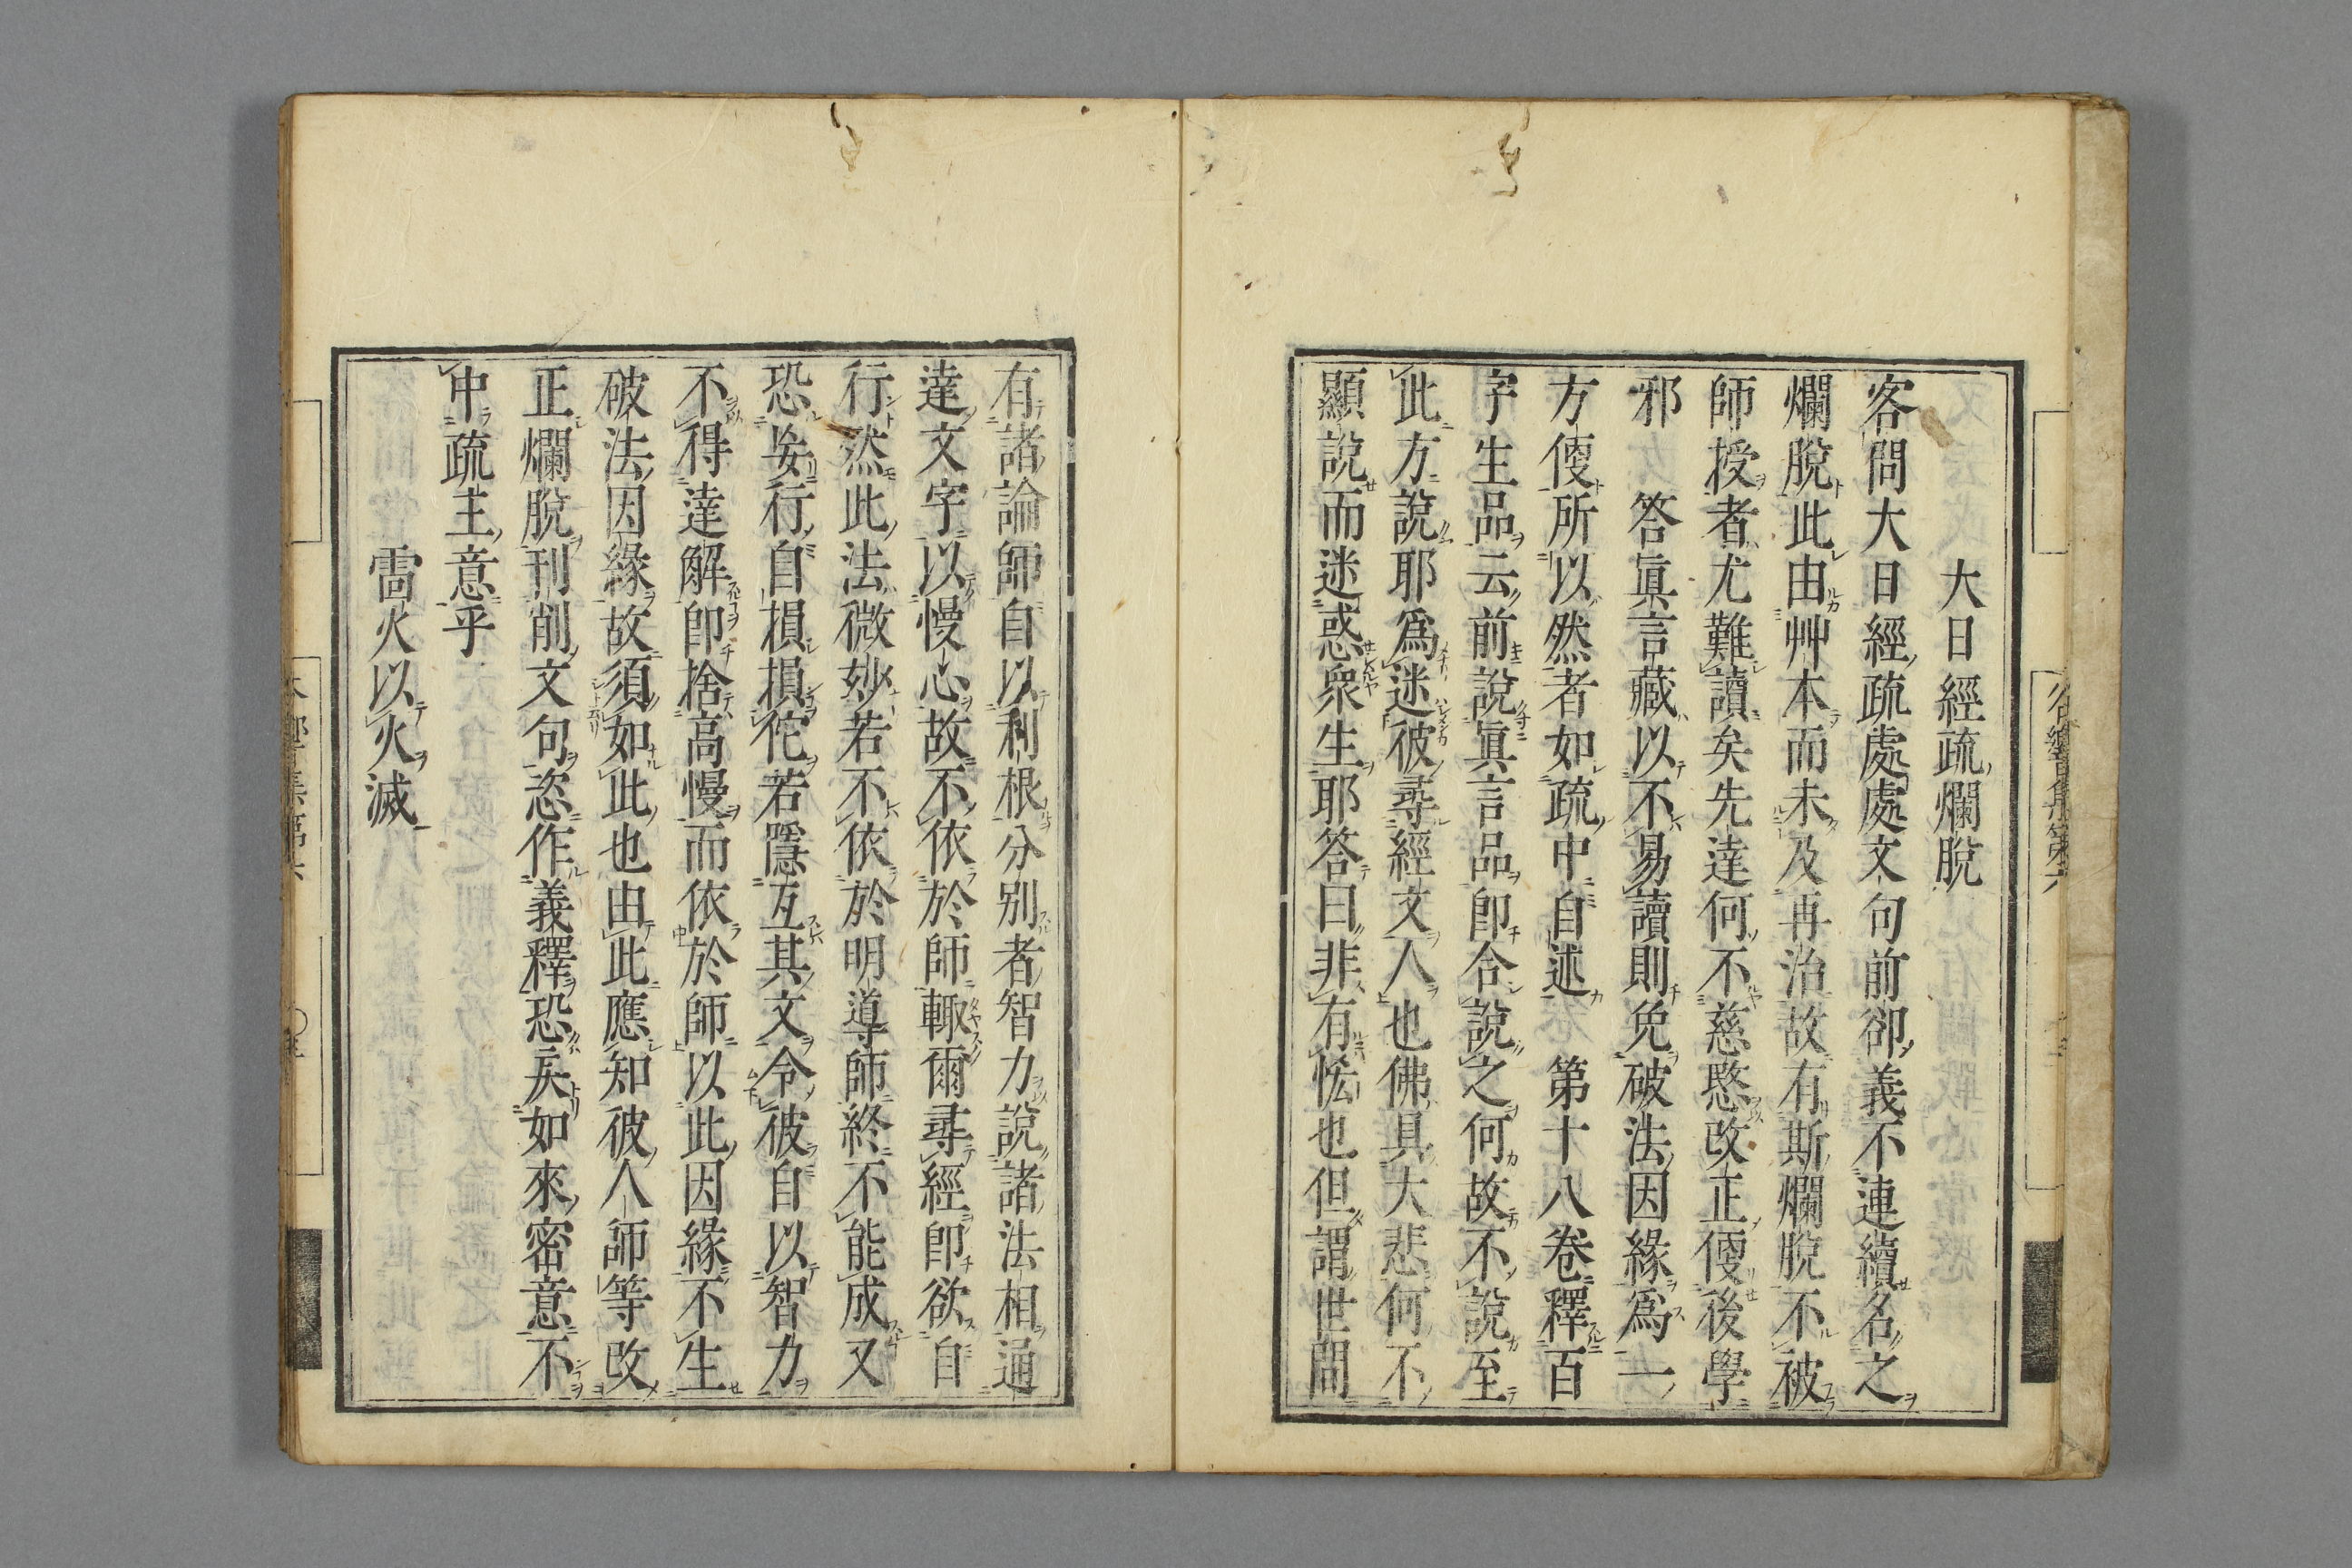 大日經疏爛脫
客問大日經疏處處文句前卻義不連續名之
爛脫此由艸本而未及再治故有斯爛脫不被
師授者尤難讀矣先達何不慈愍改正便後學
邪　答眞言藏以不易讀則免破法因緣爲一
方便所以然者如疏中自述　第十八卷釋百
字生品云前說眞言品卽合說之何故不說至
此方說耶爲迷彼尋經文人也佛具大悲何不
顯說而迷惑衆生耶答曰非有恡也但謂世間
有諸論師自以利根分別者智力說諸法相通
達文字以慢心故不依於師輙爾尋經卽欲自
行然此法微妙若不依於明導師終不能成又
恐妄行自損損佗若隱互其文令彼自以智力
不得達解卽捨高慢而依於師以此因緣不生
破法因緣故須如此也由此應知彼人師等改
正爛脫刊削文句恣作義釋恐戾如來密意不
中疏主意乎
雷火以火滅